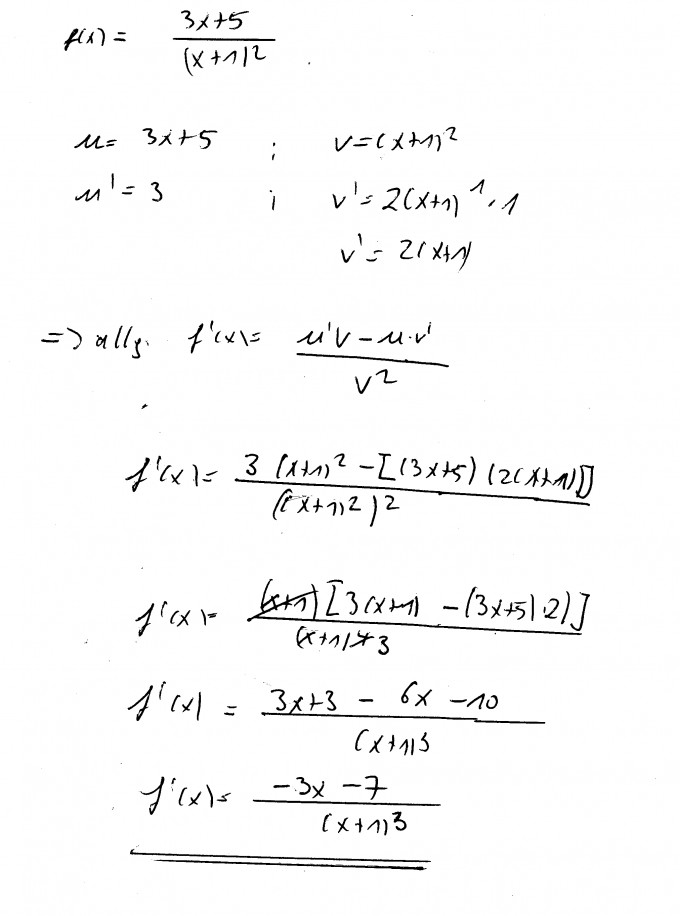 f(x) = (3x+5)/(x+1)²
u = 3x+5 ; v = (x+1)²
u' = 3 ; v' = 2(x+1)¹ · 1
v' = 2(x+1)
=> allg. f'(x) = (u'v - u·v')/v²
f'(x) = (3(x+1)² - [(3x+5)(2(x+1))])/((x+1)²)²
f'(x) = (x+1)[3(x+1) - (3x+5)·2)]/(x+1)⁴ 3
f'(x) = (3x+3 - 6x - 10)/(x+1)³
f'(x) = (-3x - 7)/(x+1)³